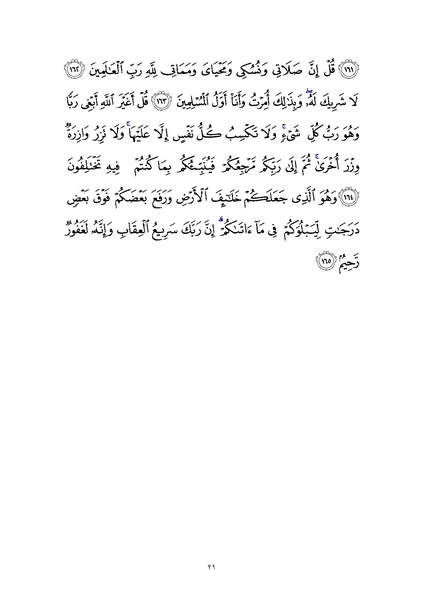 ﴿١٦١﴾ قُلْ إِنَّ صَلَاتِي وَنُسُكِي وَمَحْيَايَ وَمَمَاتِي لِلَّهِ رَبِّ الْعَالَمِينَ ﴿١٦٢﴾
لَا شَرِيكَ لَهُۥ وَبِذَٰلِكَ أُمِرْتُ وَأَنَا۠ أَوَّلُ الْمُسْلِمِينَ ﴿١٦٣﴾ قُلْ أَغَيْرَ اللَّهِ أَبْغِي رَبًّا
وَهُوَ رَبُّ كُلِّ شَيْءٍ ۚ وَلَا تَكْسِبُ كُلُّ نَفْسٍ إِلَّا عَلَيْهَا ۚ وَلَا تَزِرُ وَازِرَةٌ
وِزْرَ أُخْرَىٰ ۚ ثُمَّ إِلَىٰ رَبِّكُمْ مَرْجِعُكُمْ فَيُنَبِّئُكُمْ بِمَا كُنْتُمْ فِيهِ تَخْتَلِفُونَ
﴿١٦٤﴾ وَهُوَ الَّذِي جَعَلَكُمْ خَلَائِفَ الْأَرْضِ وَرَفَعَ بَعْضَكُمْ فَوْقَ بَعْضٍ
دَرَجَاتٍ لِيَبْلُوَكُمْ فِي مَا آتَاكُمْ ۗ إِنَّ رَبَّكَ سَرِيعُ الْعِقَابِ وَإِنَّهُ لَغَفُورٌ
رَحِيمٌ ﴿١٦٥﴾
٢١